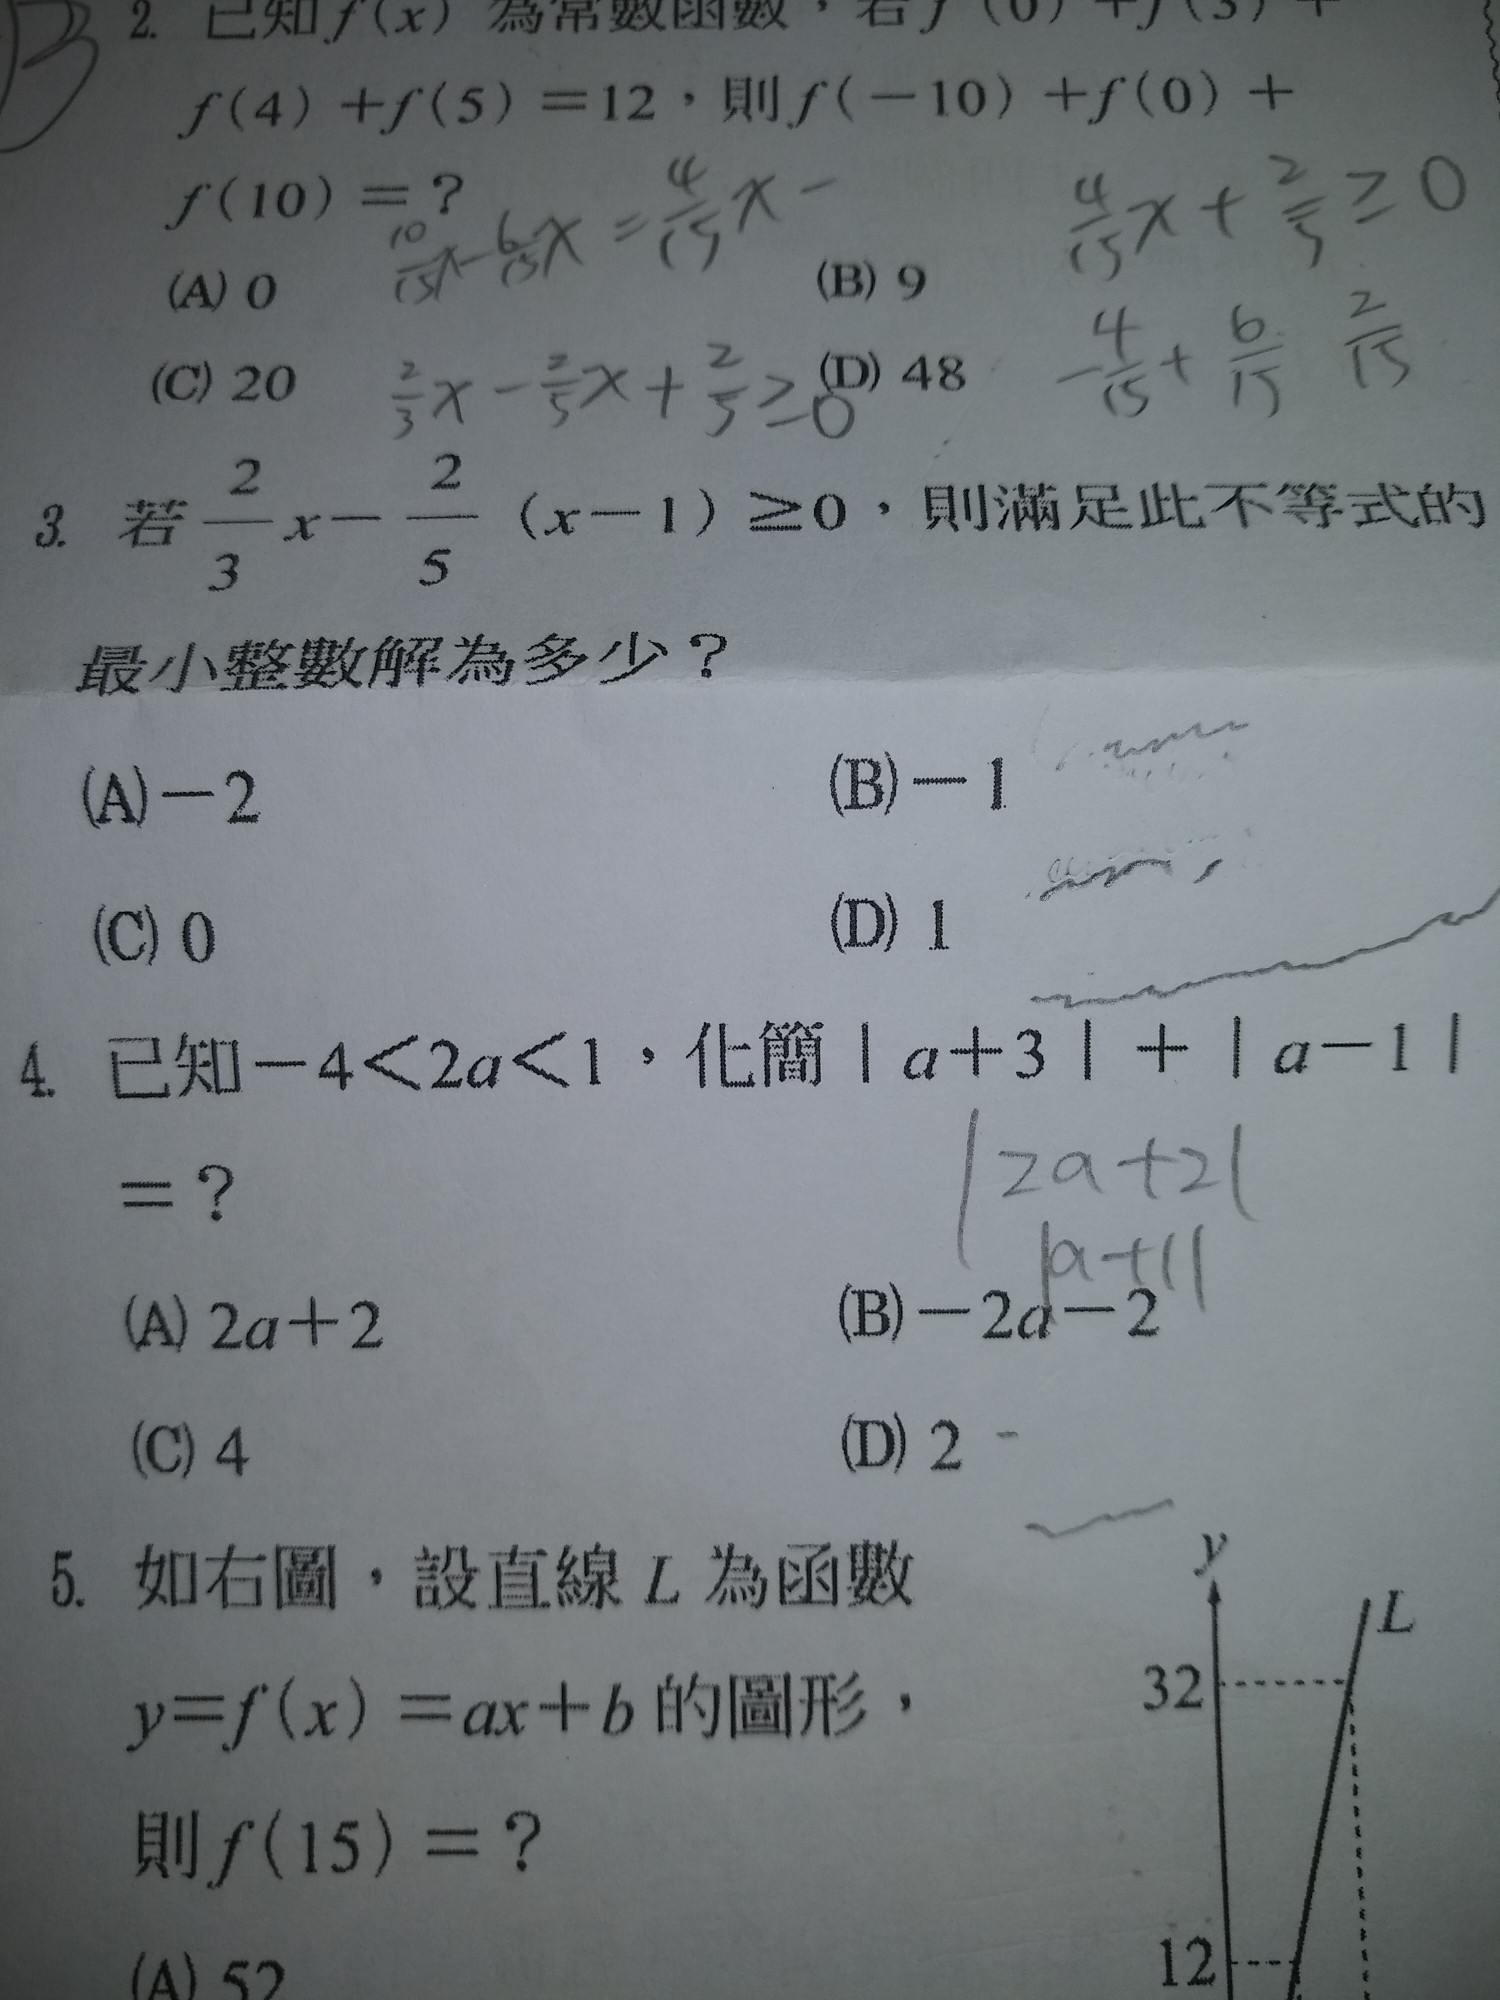 2. 已知f(x)為常數函數，若f(0)+f(3)+
f(4)+f(5)=12，則f(-10)+f(0)+
f(10)=?
10/15x-6/15x=4/15x-
4/15x+2/5≥0
(A) 0
(B) 9
-4/15+6/15 2/15
(C) 20
2/3x-2/5x+2/5≥0
(D) 48
3. 若2/3x-2/5(x-1)≥0，則滿足此不等式的
最小整數解為多少？
(A)-2
(B)-1
(C) 0
(D) 1
4. 已知-4<2a<1，化簡|a+3|+|a-1|
=?
|2a+2|
|a+1|
(A) 2a+2
(B)-2a-2
(C) 4
(D) 2
5. 如右圖，設直線L為函數
y=f(x)=ax+b的圖形，
則f(15)=?
(A) 52
y
L
32
12